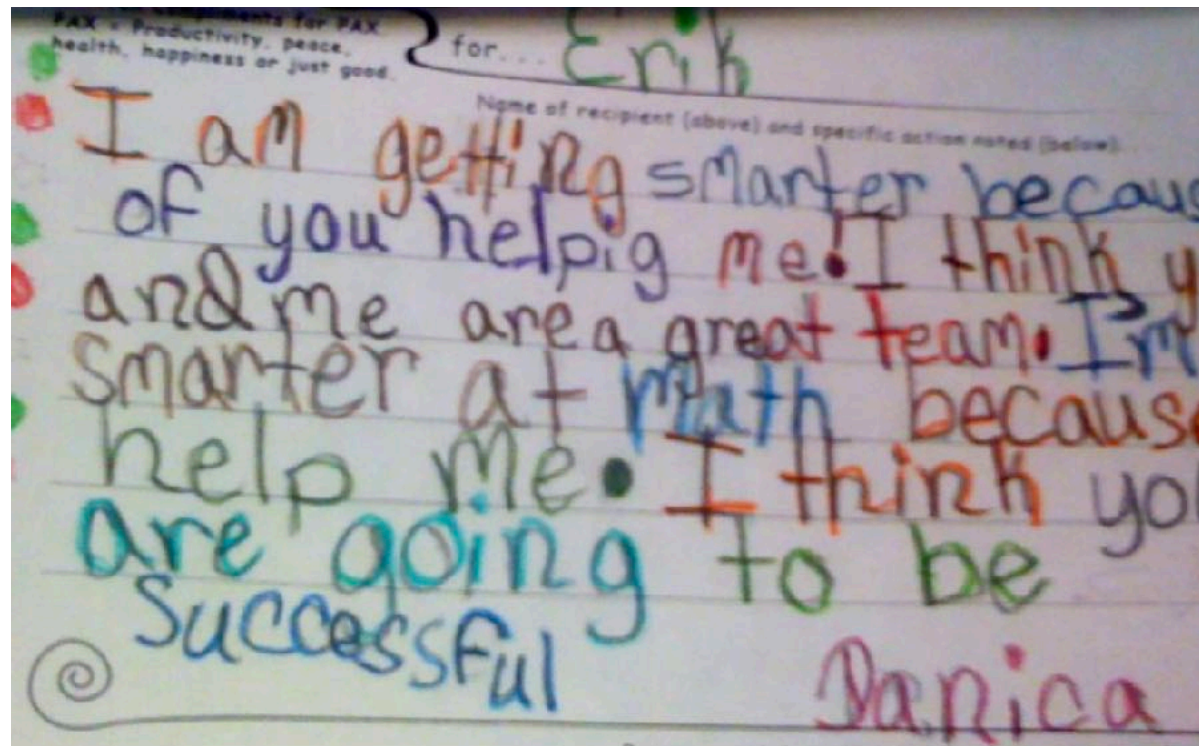 for... Erik
PAX = Productivity, peace,
health, happiness or just good.
Name of recipient (above) and specific action noted (below).
I am getting smarter becaus
of you helpig me! I think y
and me are a great team. I'm
smarter at math because
help me. I think yo
are going to be
successful
Danica